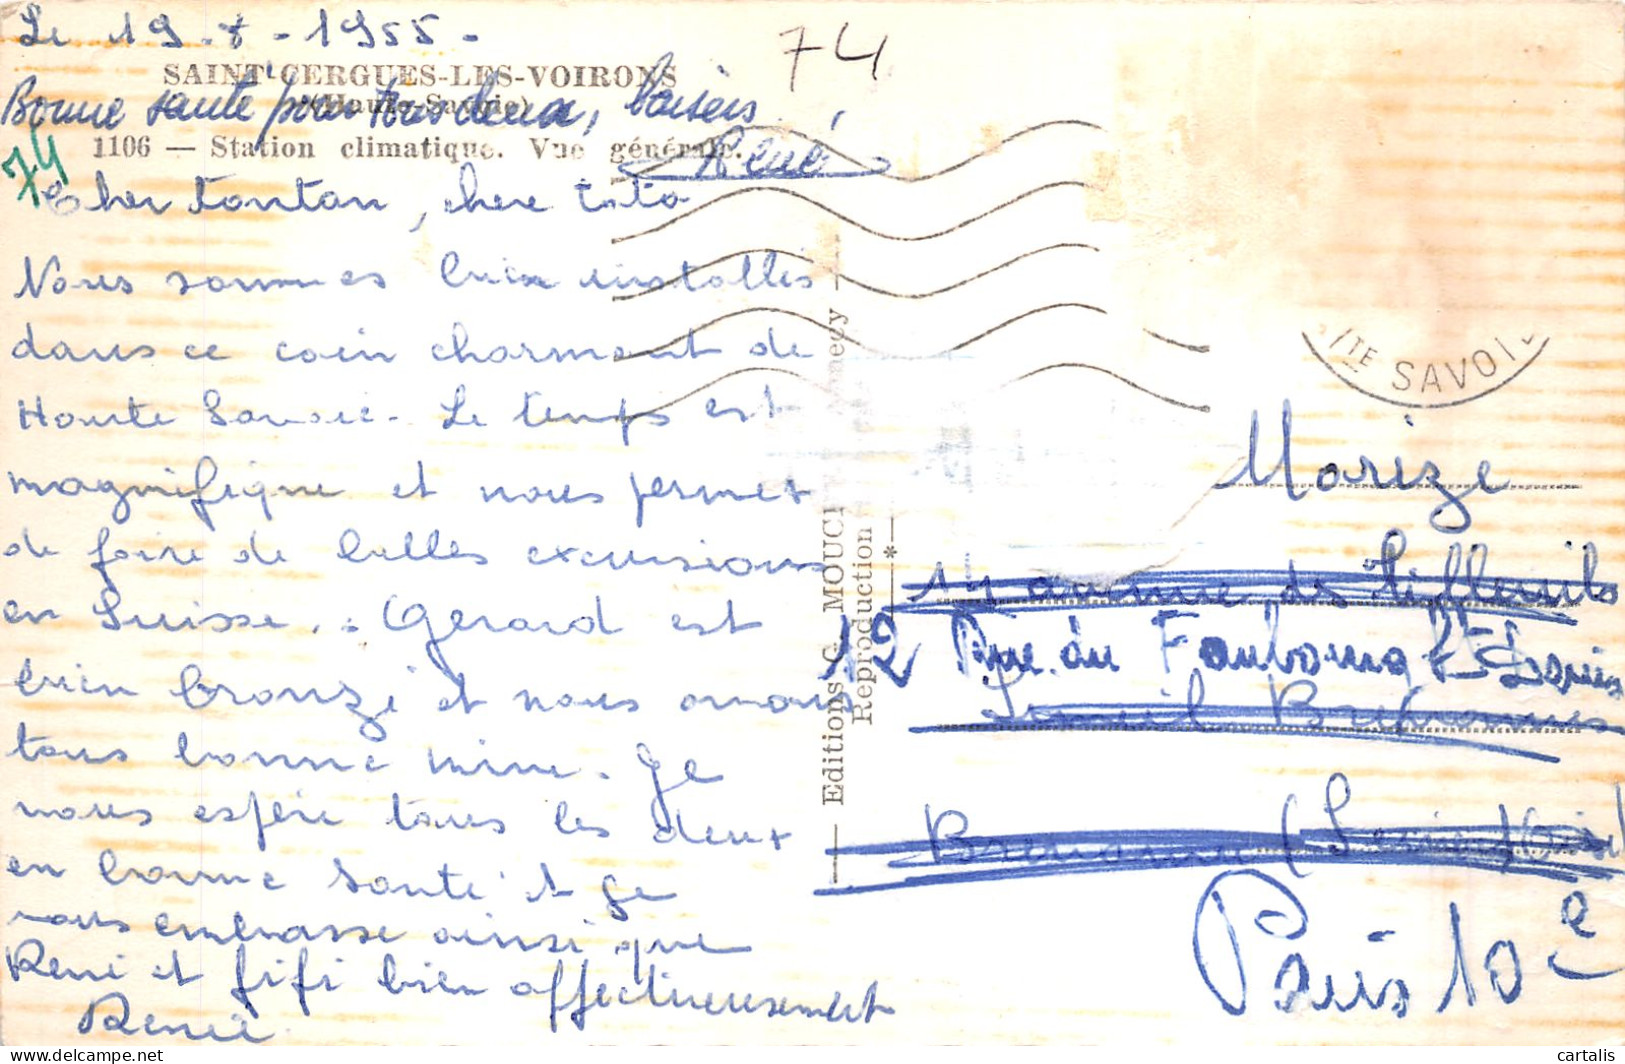 Le 19-8-1955-
74
SAINT-CERGUES-LES-VOIRONS
(Haute-Savoie)
Bonne santé pour tous deux, baisers
René
1106 — Station climatique. Vue générale.
74
Cher tonton, chere tata
Nous sommes bien installés
dans ce coin charmant de
Haute Savoie. Le temps est
magnifique et nous permet
de faire de belles excursions
en Suisse. Gérard est
bien bronzé et nous avons
tous bonne mine. Je
vous espère tous les deux
en bonne santé et je
vous embrasse ainsi que
René et fifi bien affectueusement
Renée
Editions G. MOUCHET
Reproduction
*
HTE SAVOIE
Morize
14 avenue de Tilleuls
12 Rue du Faubourg St Denis
Limeil Brévannes
Brévannes (Seine et Oise)
Paris 10e
cartalis